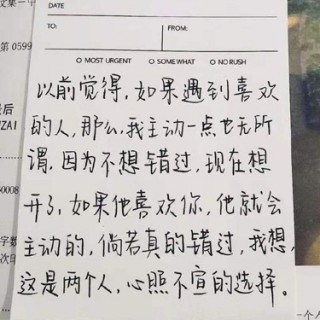 文集一
DATE
TO:
FROM:
第 0599
MOST URGENT
SOMEWHAT
NO RUSH
以前觉得,如果遇到喜欢
的人,那么,我主动一点也无所
谓,因为不想错过,现在想
开了,如果他喜欢你,他就会
主动的,倘若真的错过,我想,
这是两个人,心照不宣的选择。
最后
ZAI
60008
字数
次印